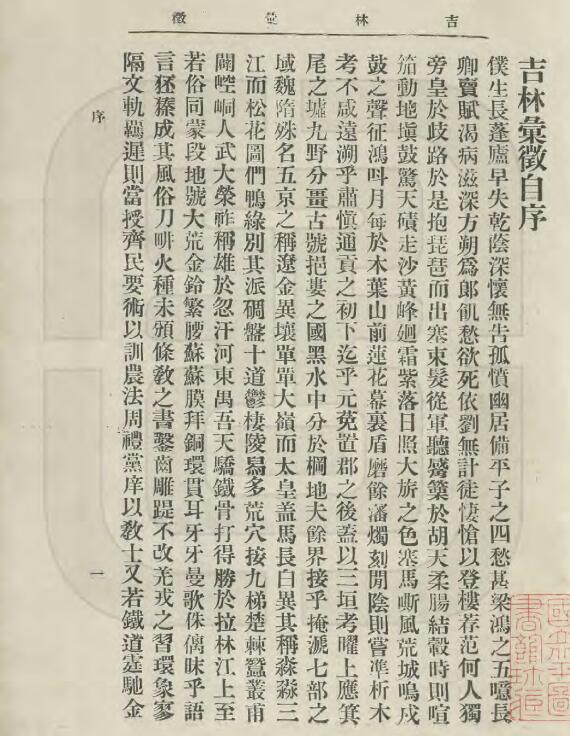 吉林彙徵
吉林彙徵自序
僕生長蓬廬早失乾陰深懷無告孤憤幽居備平子之四愁甚梁鴻之五噫長
卿賣賦渴病滋深方朔爲郎飢愁欲死依劉無計徙悽愴以登樓荐范何人獨
旁皇於歧路於是抱琵琶而出塞束髮從軍聽觱篥於胡天柔腸結轂時則喧
笳動地塡鼓驚天磧走沙黃峰廻霜紫落日照大旂之色寒馬嘶風荒城鳴戍
鼓之聲征鴻呌月每於木葉山前蓮花幕裏盾磨餘瀋燭刻閒陰則嘗準析木
考不咸遠溯乎肅愼通貢之初下迄乎元菟置郡之後蓋以三垣考曜上應箕
尾之墟九野分畺古號挹婁之國黑水中分於棡地夫餘界接乎掩㴲七部之
域魏隋殊名五京之稱遼金異壤單單大嶺而太皇盖馬長白異其稱淼淼三
江而松花圖們鴨綠別其派磵盤十道鬱棲陵舄多荒穴接九梯楚棘蠶叢甫
闢崆峒人武大榮祚稱雄於忽汗河東禺吾天驕鐵骨打得勝於拉林江上至
若俗同蒙段地號大荒金鈴繁腰蘇蘇膜拜銅環貫耳牙牙曼歌侏㒧昧乎語
言狉榛成其風俗刀畊火種未頒條敎之書鑿齒雕踶不改羌戎之習環象寥
隔文軌羈遲則當授齊民要術以訓農法周禮黨庠以敎士又若鐵道霆馳金
序
一